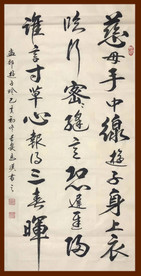 慈母手中線遊子身上衣
臨行密密縫意恐遲遲歸
誰言寸草心報得三春暉
孟郊遊子吟